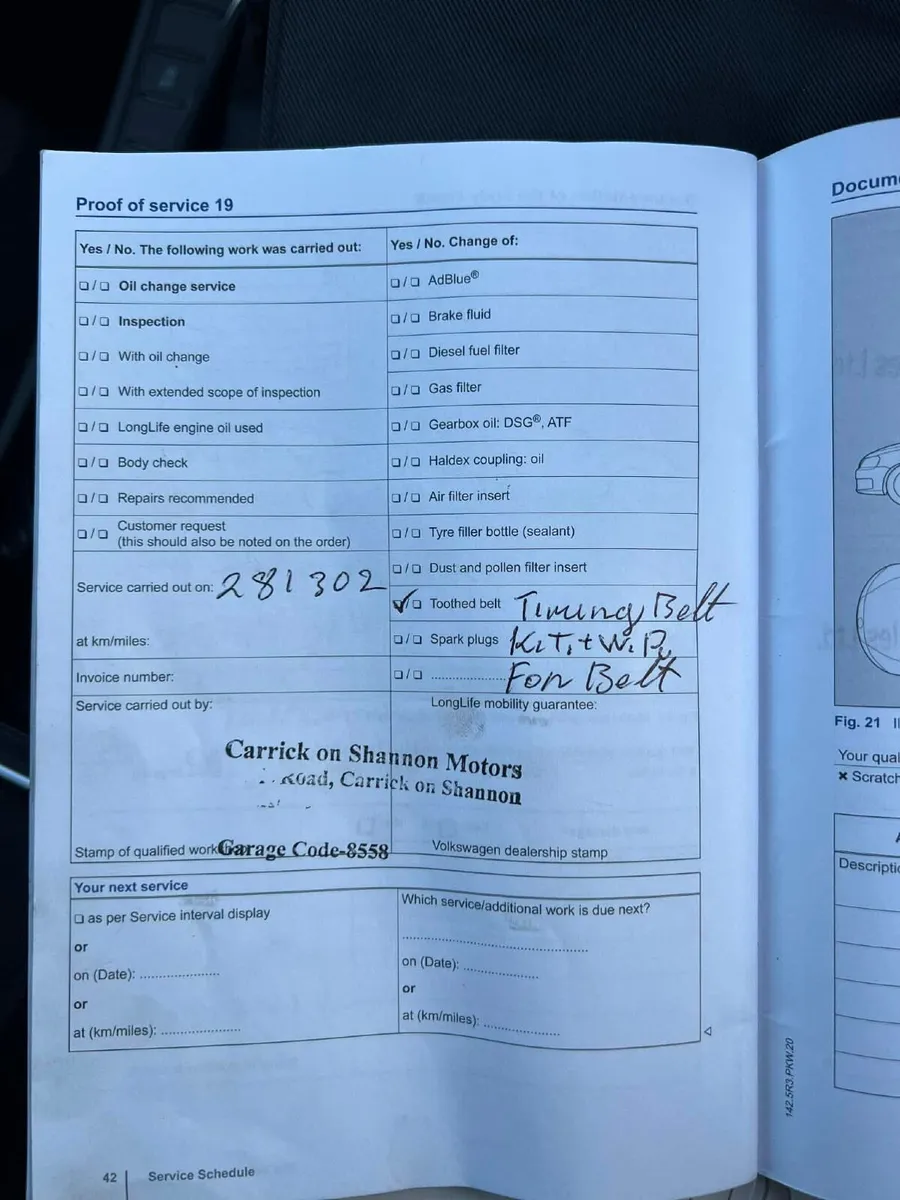 Proof of service 19
Yes / No. The following work was carried out:
❏ / ❏ Oil change service
❏ / ❏ Inspection
❏ / ❏ With oil change
❏ / ❏ With extended scope of inspection
❏ / ❏ LongLife engine oil used
❏ / ❏ Body check
❏ / ❏ Repairs recommended
❏ / ❏ Customer request
(this should also be noted on the order)
Service carried out on: 281302
at km/miles:
Invoice number:
Yes / No. Change of:
❏ / ❏ AdBlue®
❏ / ❏ Brake fluid
❏ / ❏ Diesel fuel filter
❏ / ❏ Gas filter
❏ / ❏ Gearbox oil: DSG®, ATF
❏ / ❏ Haldex coupling: oil
❏ / ❏ Air filter insert
❏ / ❏ Tyre filler bottle (sealant)
❏ / ❏ Dust and pollen filter insert
✓ / ❏ Toothed belt Timing Belt
❏ / ❏ Spark plugs KiTi + W.P.
❏ / ❏ .................... Fon Belt
Service carried out by:
LongLife mobility guarantee:
Carrick on Shannon Motors
Road, Carrick on Shannon
Garage Code-8558
Stamp of qualified work
Volkswagen dealership stamp
Your next service
❏ as per Service interval display
or
on (Date): ....................
or
at (km/miles): ....................
Which service/additional work is due next?
on (Date): ....................
or
at (km/miles): ....................
142.5R3.PKW.20
42 Service Schedule
Docum
Fig. 21
Your qual
× Scratch
Descripti